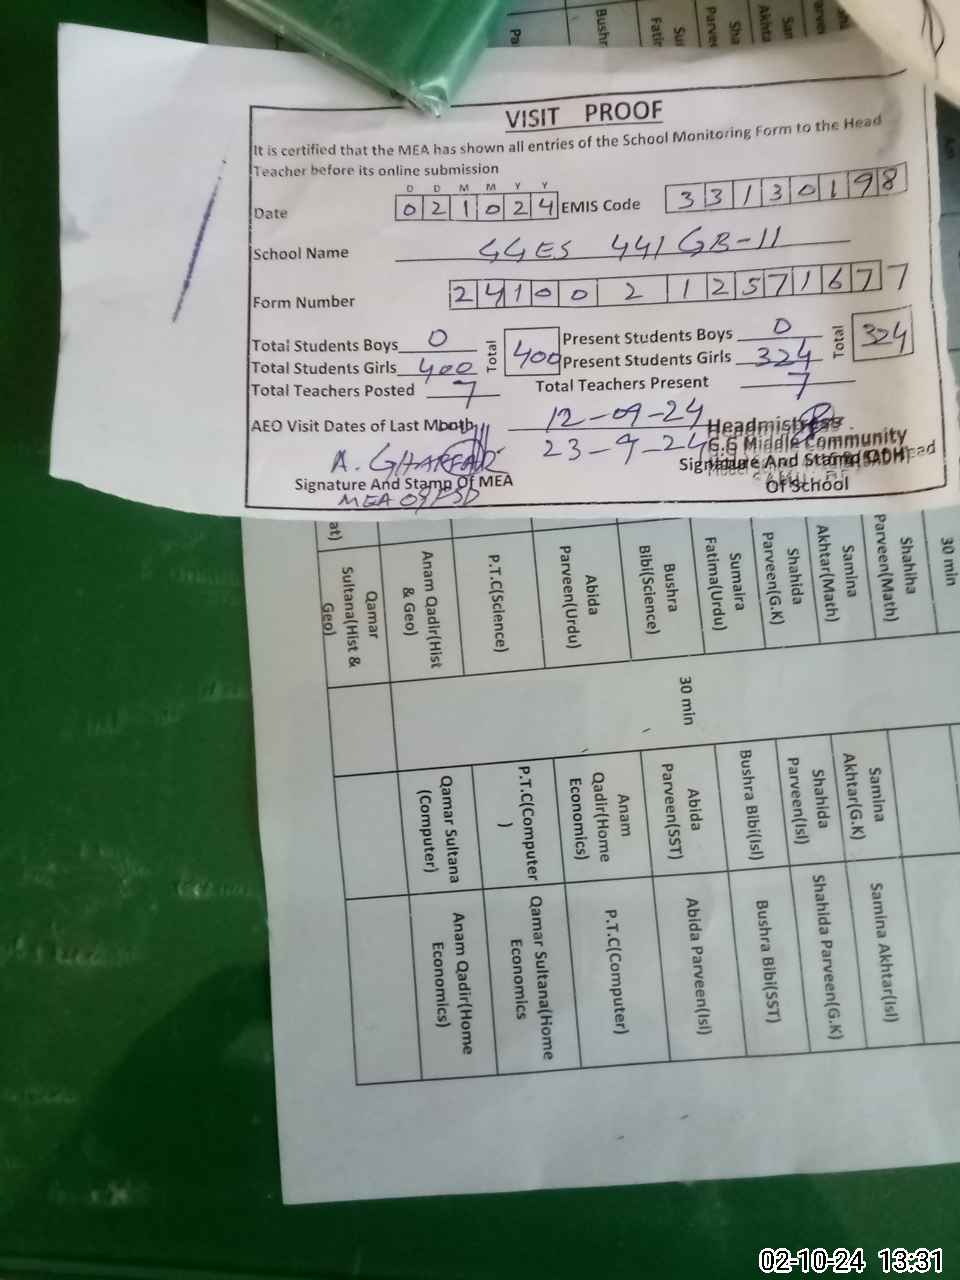 VISIT PROOF
It is certified that the MEA has shown all entries of the School Monitoring Form to the Head
Teacher before its online submission
D D M M Y Y
Date 0 2 1 0 2 4 EMIS Code 3 3 1 3 0 1 9 8
School Name GGES 441 GB-II
Form Number 2 4 1 0 0 2 1 2 5 7 1 6 7 7
Total Students Boys 0 Total 400 Present Students Boys 0 Total 324
Total Students Girls 400 Present Students Girls 324
Total Teachers Posted 7 Total Teachers Present 7
AEO Visit Dates of Last Month 12-09-24
23-9-24
Headmistress
G.G Middle Community
A. GHAFFAR
Signature And Stamp Of Head
Of School
Signature And Stamp Of MEA
MEA 09 FSD
30 min
Shahiha Parveen(Math)
Samina Akhtar(Math)
Shahida Parveen(G.K)
Sumaira Fatima(Urdu)
Bushra Bibi(Science)
Abida Parveen(Urdu)
P.T.C(Science)
Anam Qadir(Hist & Geo)
Qamar Sultana(Hist & Geo)
30 min
Samina Akhtar(G.K)
Shahida Parveen(Isl)
Bushra Bibi(Isl)
Abida Parveen(SST)
Anam Qadir(Home Economics)
P.T.C(Computer)
Qamar Sultana (Computer)
Samina Akhtar(Isl)
Shahida Parveen(G.K)
Bushra Bibi(SST)
Abida Parveen(Isl)
P.T.C(Computer)
Qamar Sultana(Home Economics
Anam Qadir(Home Economics)
02-10-24 13:31